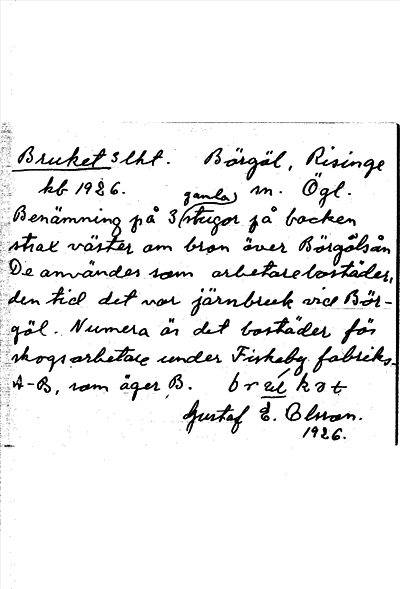 Bruket 3 lht. Börgöl, Risinge
kb 1926. sn. Ögl.
Benämning på 3 gamla stugor på backen
strax väster om bron över Börgölsån
De användes som arbetarebostäder,
den tid det var järnbruk vid Bör-
göl. Numera är det bostäder för
skogsarbetare under Fiskeby fabriks-
A-B, som äger B.
Gustaf E. Olsson.
1926.